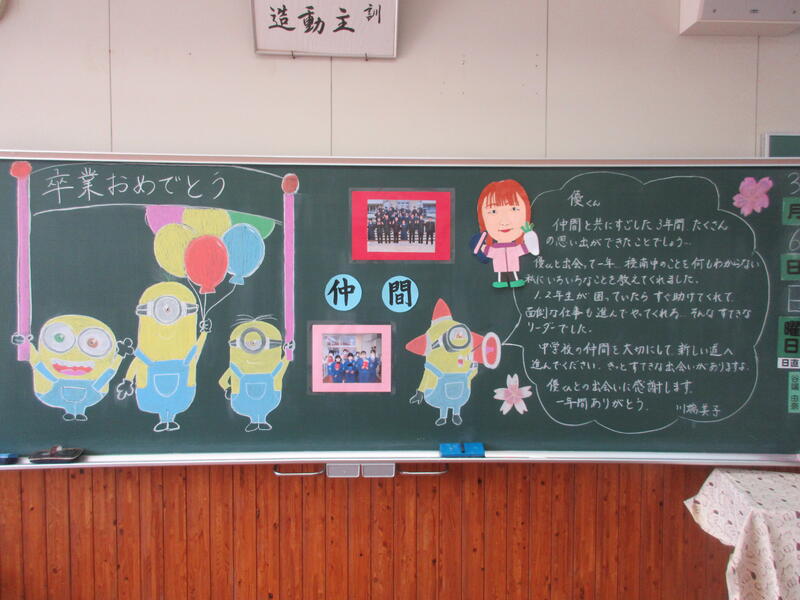 訓
主動造
卒業おめでとう
仲間
優くん
仲間と共にすごした3年間、たくさん
の思い出ができたことでしょう…
優くんと出会って一年、稜南中のことを何もわからない
私にいろいろなことを教えてくれました。
1、2年生が困っていたらすぐ助けてくれて、
面倒な仕事も進んでやってくれる…そんなすてきな
リーダーでした。
中学校の仲間を大切にして、新しい道へ
進んでください。きっとすてきな出会いがありますよ。
優くんとの出会いに感謝します。
一年間ありがとう。
川橋美子
3
月
6
日
曜
日
日直